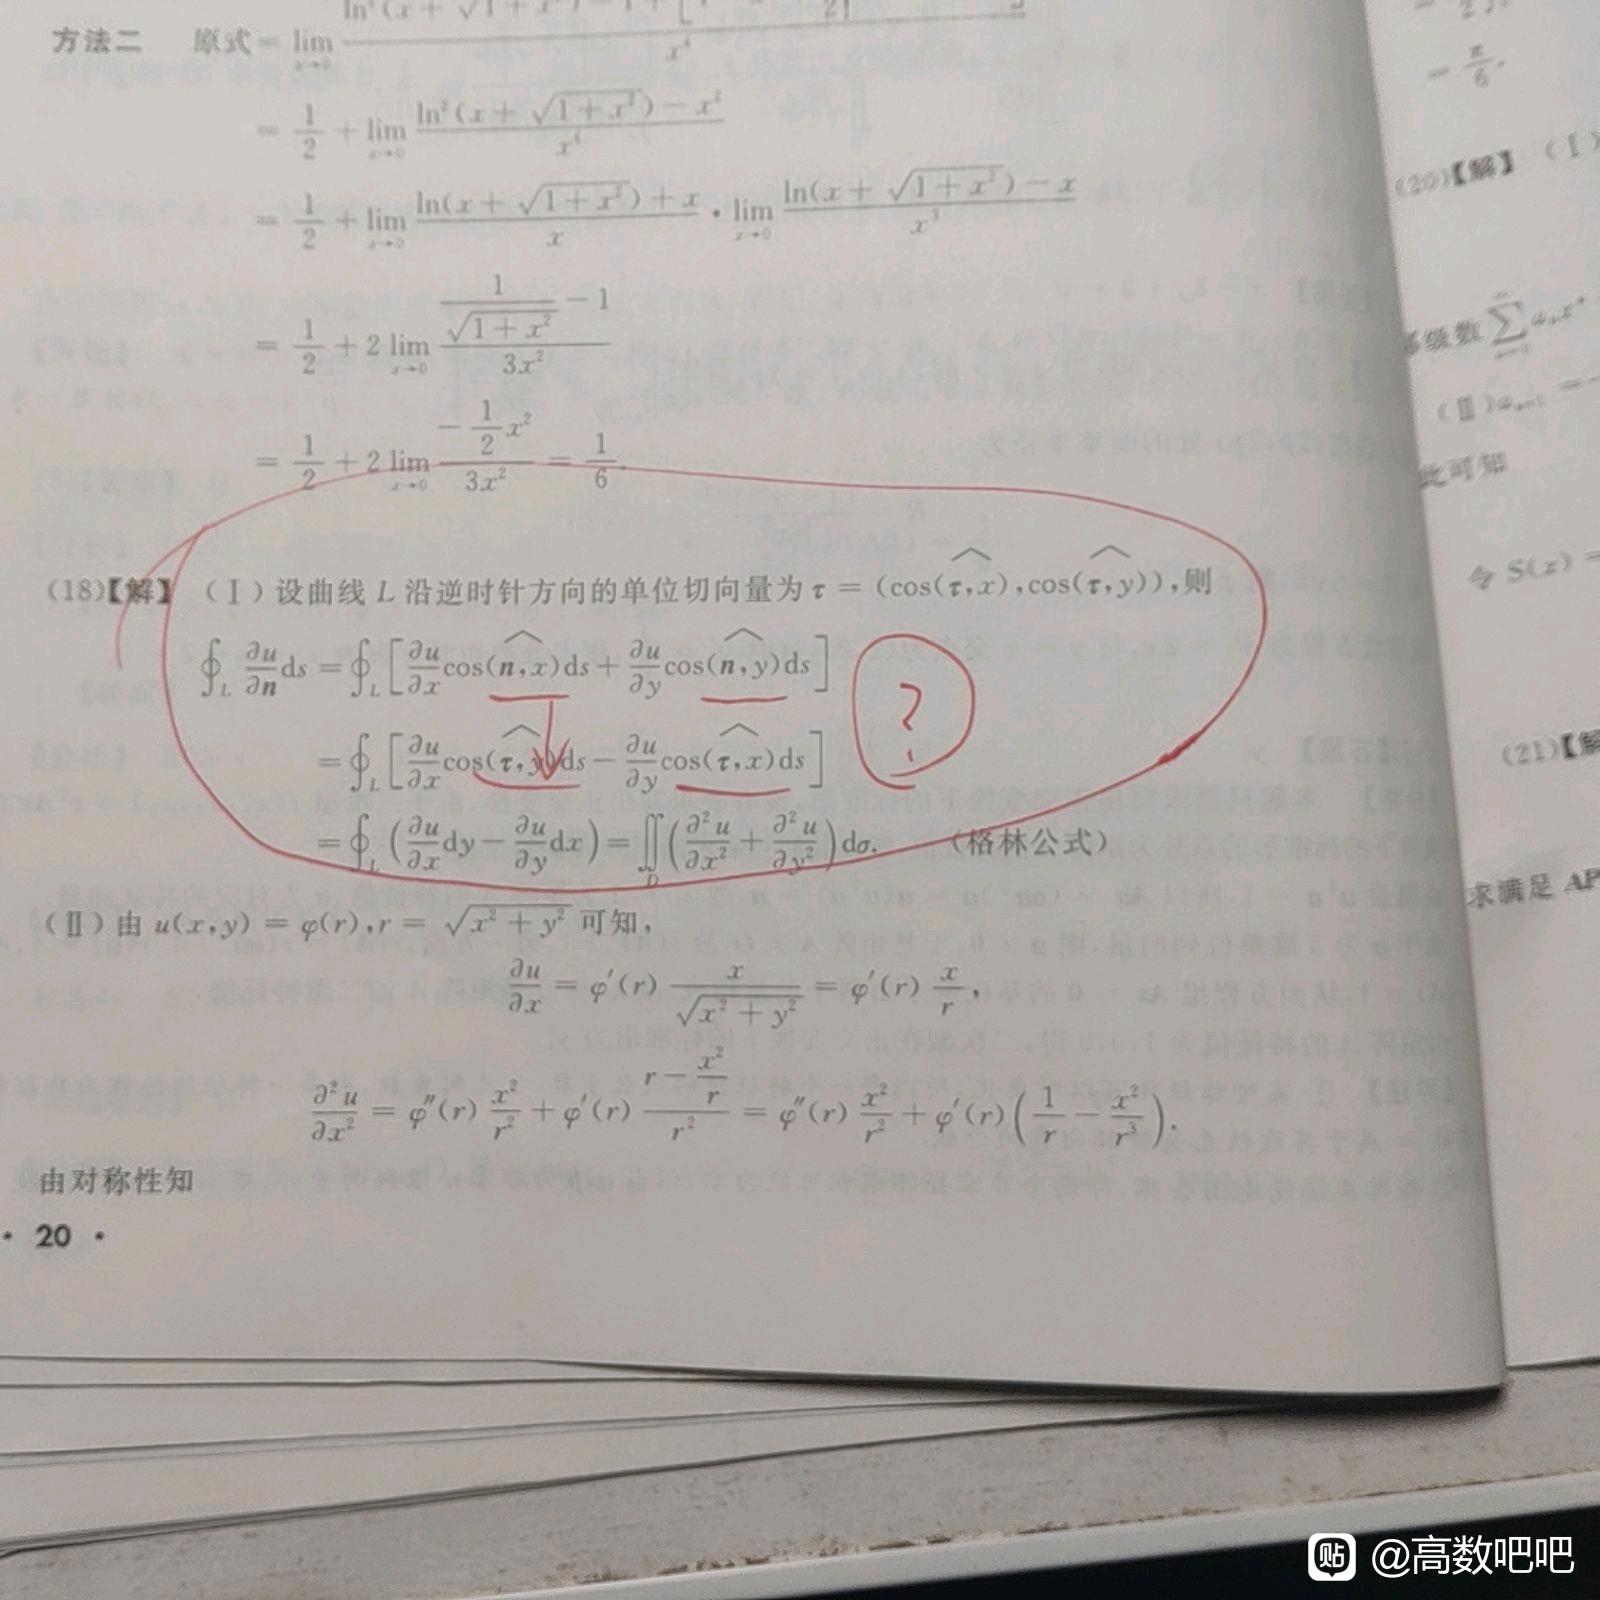 方法二 原式 = lim x→0 ln²(x + √(1 + x²)) − 1 + [1 2! x⁴
= 1/2 + lim x→0 (ln²(x + √(1 + x²)) − x²)/x⁴
= 1/2 + lim x→0 (ln(x + √(1 + x²)) + x)/x · lim x→0 (ln(x + √(1 + x²)) − x)/x³
= 1/2 + 2 lim x→0 (1/√(1 + x²) − 1)/(3x²)
= 1/2 + 2 lim x→0 (−1/2 x²)/(3x²) = 1/6.
(18)【解】 (Ⅰ) 设曲线 L 沿逆时针方向的单位切向量为 τ = (cos(τ,x),cos(τ,y)),则
∮_L ∂u/∂n ds = ∮_L [∂u/∂x cos(n,x)ds + ∂u/∂y cos(n,y)ds]
?
= ∮_L [∂u/∂x cos(τ,y)ds − ∂u/∂y cos(τ,x)ds]
= ∮_L (∂u/∂x dy − ∂u/∂y dx) = ∬_D (∂²u/∂x² + ∂²u/∂y²)dσ. (格林公式)
(Ⅱ) 由 u(x,y) = φ(r),r = √(x² + y²) 可知,
∂u/∂x = φ′(r) x/√(x² + y²) = φ′(r) x/r,
∂²u/∂x² = φ″(r) x²/r² + φ′(r) (r − x²/r)/r² = φ″(r) x²/r² + φ′(r)(1/r − x²/r³).
由对称性知
· 20 ·
− π/6.
(20)【解】 (Ⅰ)
级数 ∑
(Ⅱ)
此可知
令 S(x) =
(21)【解
求满足 AP
贴 @高数吧吧